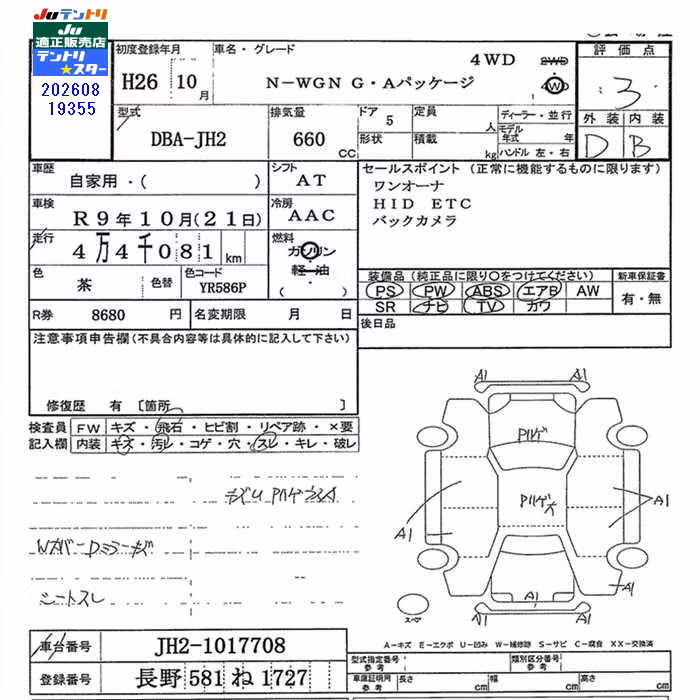 Juテントリ
Ju
適正販売店
テントリ
★スター
202608
19355
初度登録年月
H26 10月
車名・グレード
N-WGN G・Aパッケージ
4WD
2WD
4WD
評価点
3
外装 内装
D B
型式
DBA-JH2
排気量
660 CC
ドア 5
形状
定員 人
積載 kg
ディーラー・並行
モデル年式 年
ハンドル 左・右
車歴
自家用・( )
シフト
AT
車検
R9年10月(21日)
冷房
AAC
走行
4万4千081 km
燃料
ガソリン
軽油
( )
色
茶
色替
色コード
YR586P
R券 8680 円
名変期限 月 日
セールスポイント (正常に機能するものに限ります)
ワンオーナ
HID ETC
バックカメラ
装備品 (純正品に限り○をつけてください)
PS PW ABS エアB AW
SR ナビ TV カワ
新車保証書
有・無
後日品
注意事項申告欄(不具合内容等は具体的に記入して下さい)
修復歴 有 〔箇所 〕
検査員記入欄
FW キズ・飛石・ヒビ割・リペア跡・×要
内装 キズ・汚レ・コゲ・穴・スレ・キレ・破レ
シートスレ
A1 A1
A1
A1
A1
A1
A1 A1
スペア
A-キズ E-エクボ U-凹み W-補修跡 S-サビ C-腐食 XX-交換済
車台番号 JH2-1017708
登録番号 長野 581 ね 1727
型式指定番号 参考
類別区分番号 参考
車庫証明用 参考
長さ cm
幅 cm
高さ cm